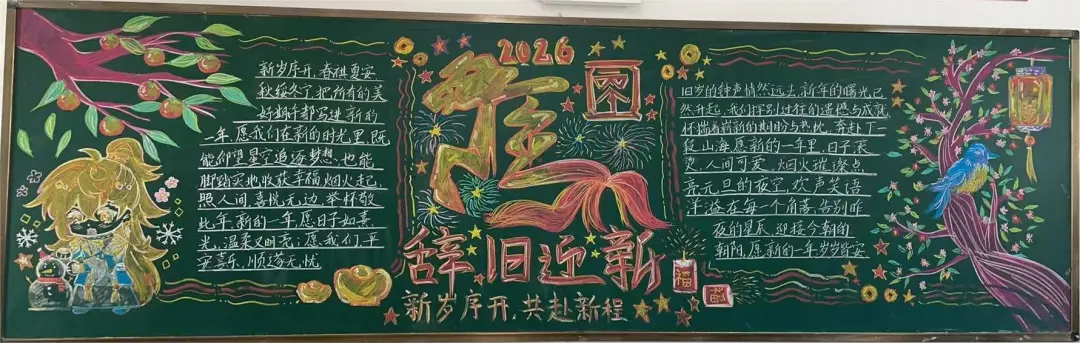 新岁序开,春祺夏安
秋绥冬宁,把所有的美
好期许都写进新的
一年,愿我们在新的时光里,既
能仰望星空追逐梦想,也能
脚踏实地收获幸福,烟火起,
照人间,喜悦无边,举杯敬
此年,新的一年,愿日子如熹
光,温柔又明亮;愿我们,平
安喜乐,顺遂无忧
2026
辞旧迎新
新岁序开,共赴新程
福
旧岁的钟声悄然远去,新年的曙光已
然升起,我们挥别过往的遗憾与成就
怀揣着崭新的期盼与热忱,奔赴下一
段山海,愿新的一年里,日子滚
烫,人间可爱,烟火璀璨点
亮元旦的夜空,欢声笑语
洋溢在每一个角落,告别昨
夜的星辰,迎接今朝的
朝阳,愿新的一年岁岁皆安